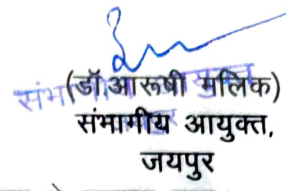 (डॉ.आरूषी मलिक)
संभागीय आयुक्त,
जयपुर